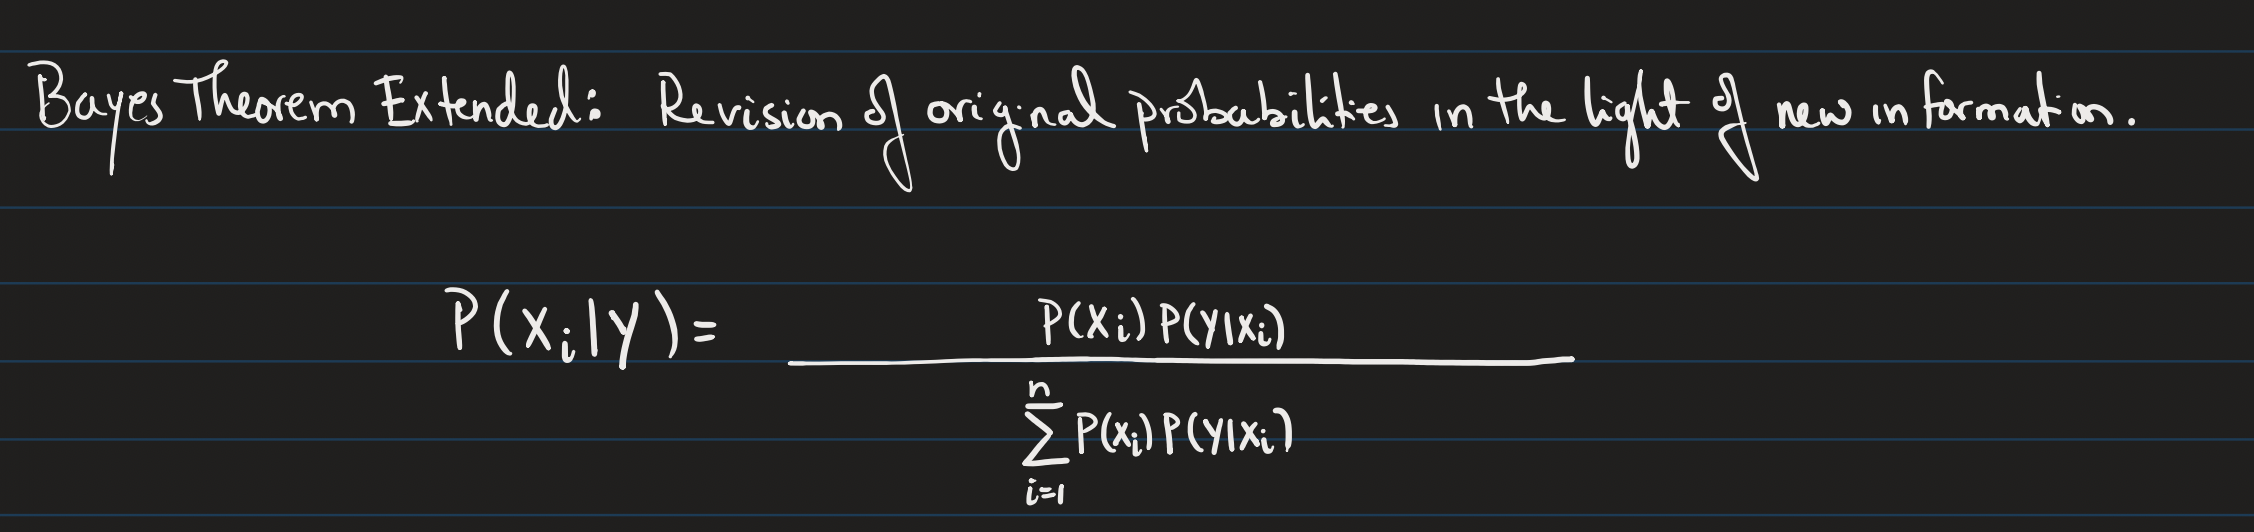 Bayes Theorem Extended: Revision of original probabilities in the light of new information.
P(xᵢ|y) =
P(xᵢ) P(y|xᵢ)
n
∑ P(xᵢ) P(y|xᵢ)
i=1